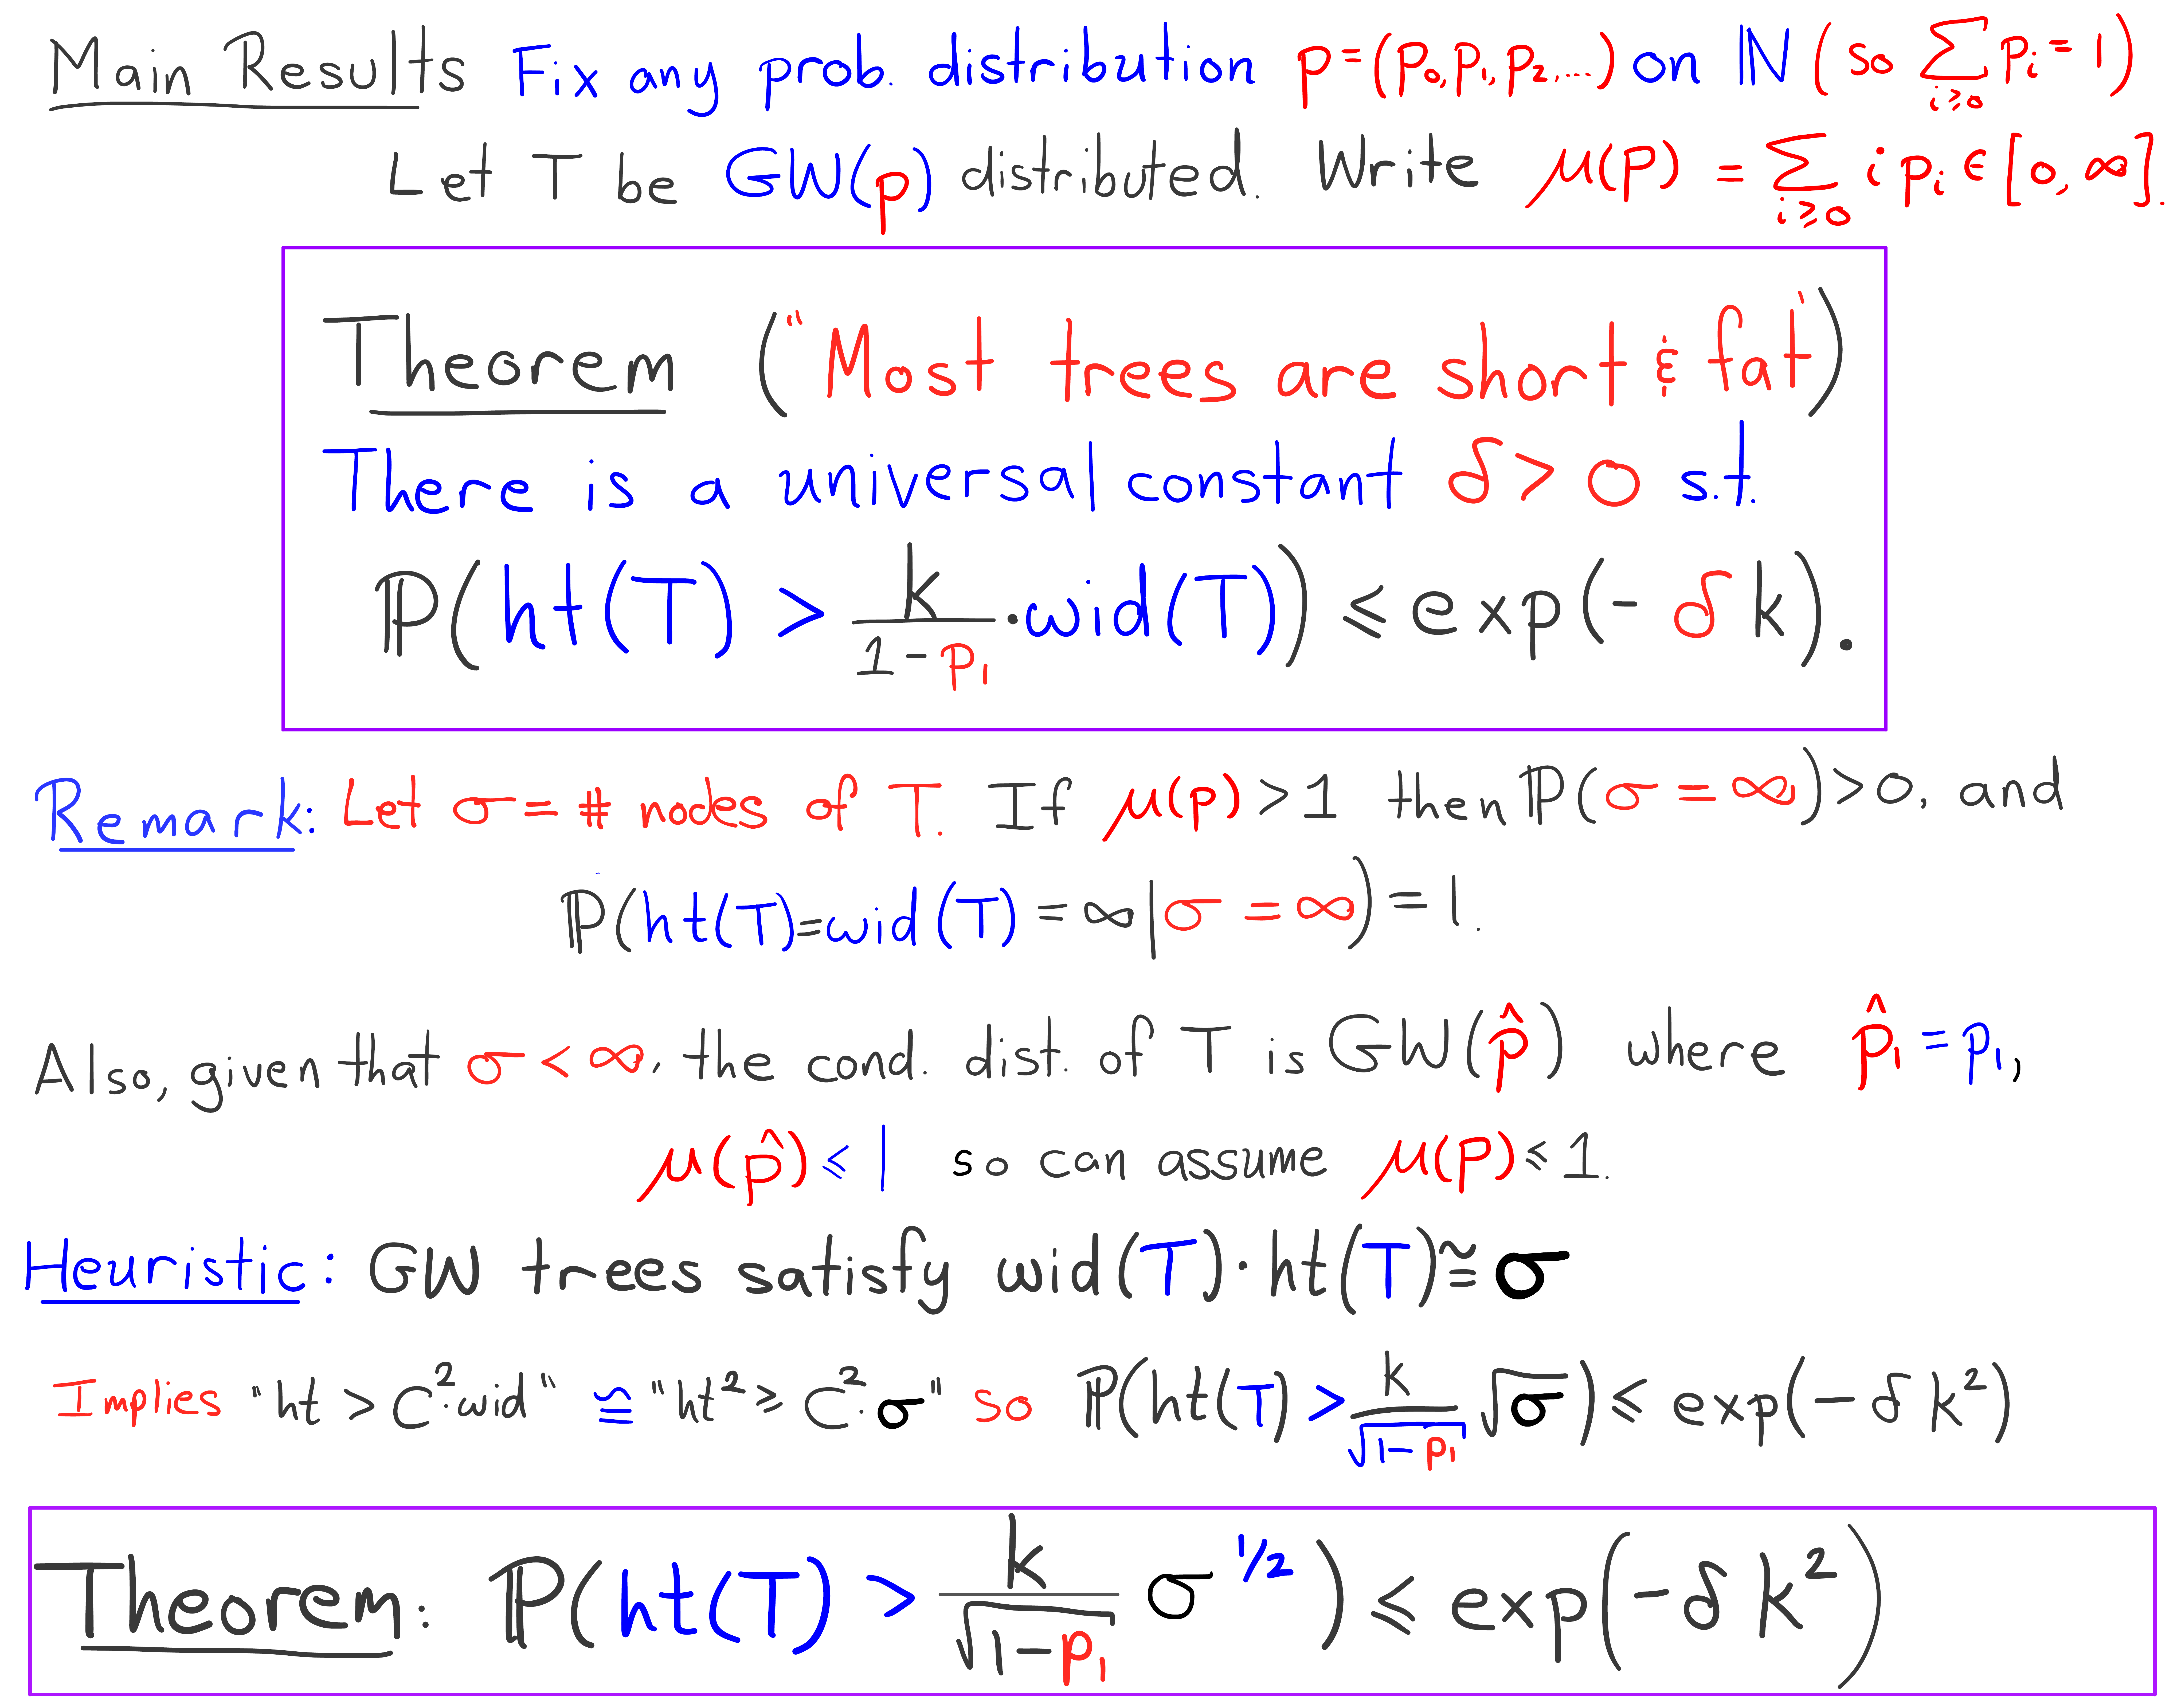 Main Results Fix any prob. distribution p=(p₀,p₁,p₂,...) on ℕ (so ∑_{i≥0} pᵢ=1)
Let T be GW(p) distributed. Write μ(p) = ∑_{i≥0} i pᵢ ∈ [0,∞].
Theorem ("Most trees are short & fat")
There is a universal constant δ>0 s.t.
ℙ(ht(T) > k/(1-p₁) · wid(T)) ≤ exp(-δk).
Remark: Let σ = # nodes of T. If μ(p) > 1 then ℙ(σ = ∞) > 0, and
ℙ(ht(T)=wid(T) = ∞ | σ = ∞) = 1.
Also, given that σ < ∞, the cond. dist. of T is GW(p̂) where p̂₁ = p₁,
μ(p̂) ≤ 1 so can assume μ(p) ≤ 1.
Heuristic: GW trees satisfy wid(T)·ht(T) ≊ σ
Implies "ht > C²·wid" ≅ "ht² ≥ C²·σ" so ℙ(ht(T) > k/√(1-p₁) √σ) ≤ exp(-δk²)
Theorem: ℙ(ht(T) > k/√(1-p₁) σ^{1/2}) ≤ exp(-δk²)